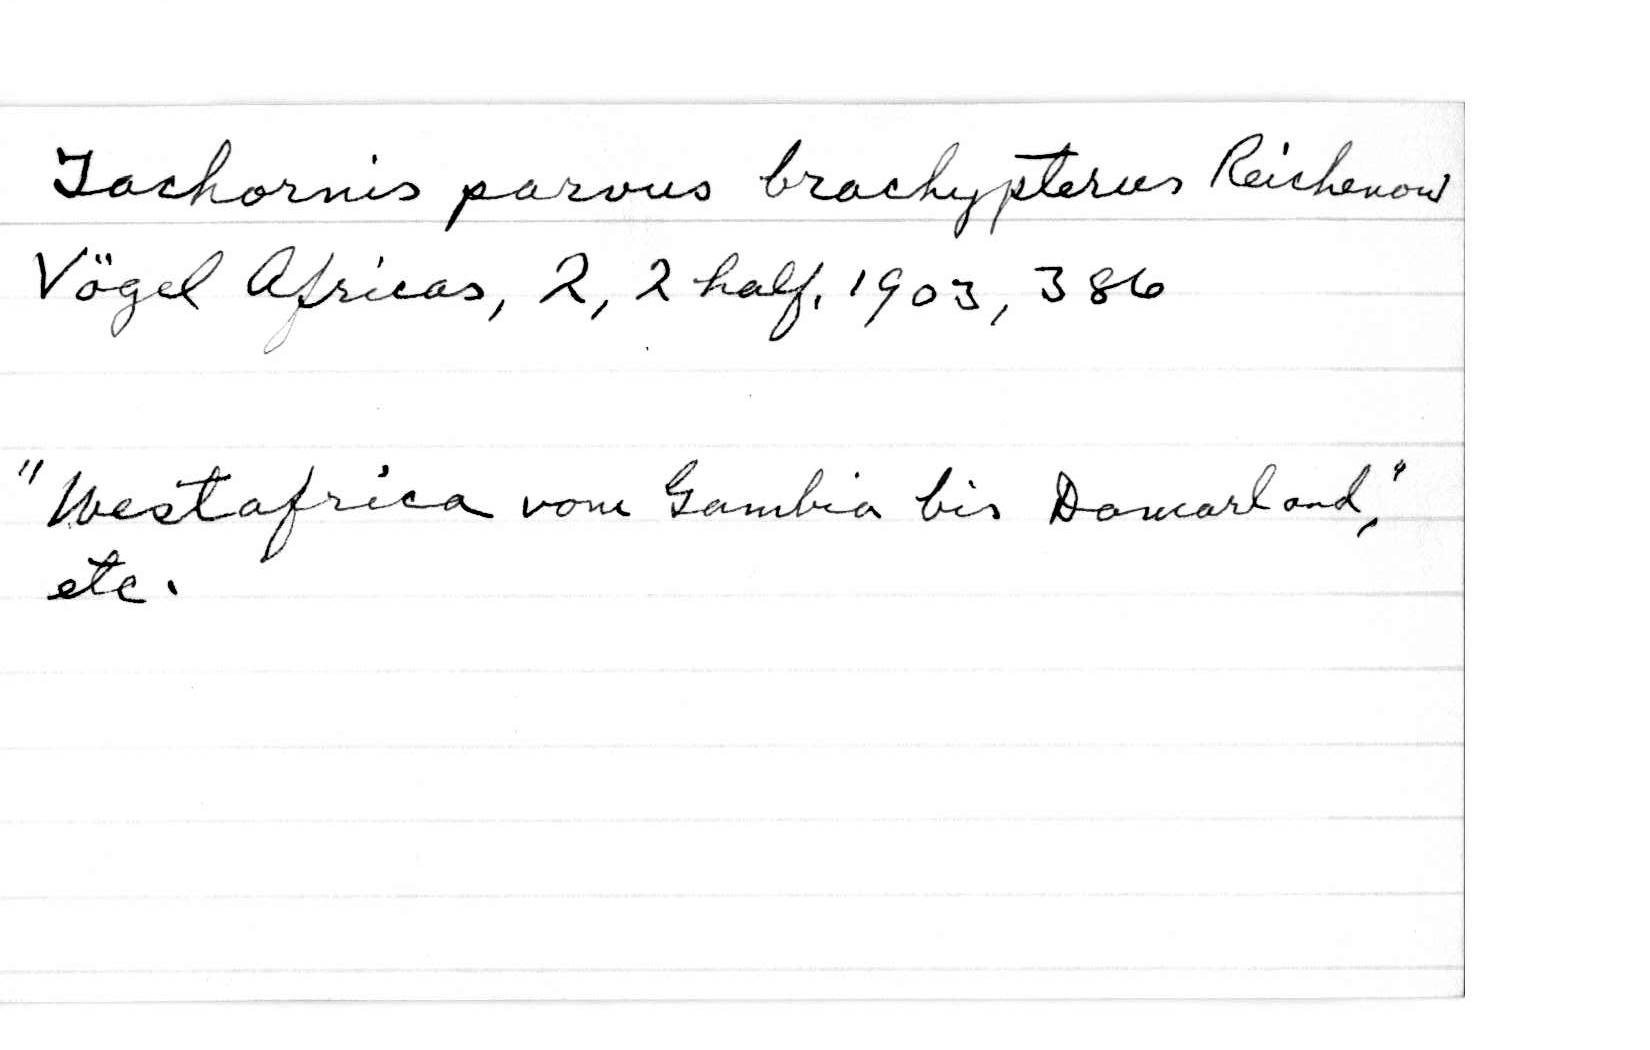 Tachornis parvus brachypterus Reichenow
Vögel Africas, 2, 2 half, 1903, 386
"Westafrica vom Gambia bis Damarland,"
etc.